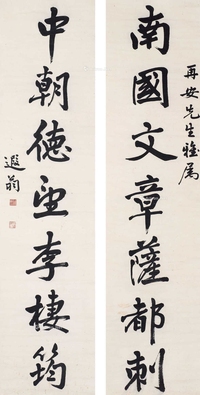 再安先生雅屬
南國文章薩都刺
中朝德望李棲筠
遐翁